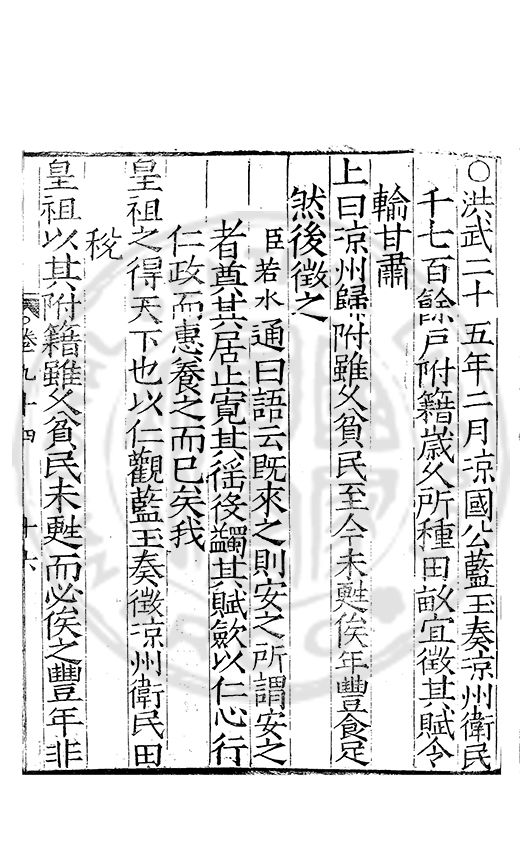 ○洪武二十五年二月涼國公藍玉奏涼州衛民
千七百餘戶附籍歲久所種田畝宜徵其賦令
輸甘肅
上曰涼州歸附雖久貧民至今未甦俟年豐食足
然後徵之
臣若水通曰語云既來之則安之所謂安之
者奠其居止寬其徭役蠲其賦歛以仁心行
仁政而惠養之而已矣我
皇祖之得天下也以仁觀藍玉奏徵涼州衛民田
稅
皇祖以其附籍雖久貧民未甦而必俟之豐年非
卷九十四 十六